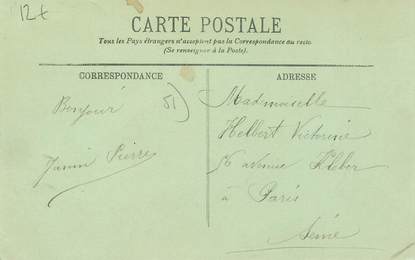 12+
CARTE POSTALE
Tous les Pays étrangers n'acceptent pas la Correspondance au recto.
(Se renseigner à la Poste).
CORRESPONDANCE
ADRESSE
Bonjour
51)
Pierre
Mademoiselle
Helbert Victorine
56 avenue Kleber
à Paris
Seine